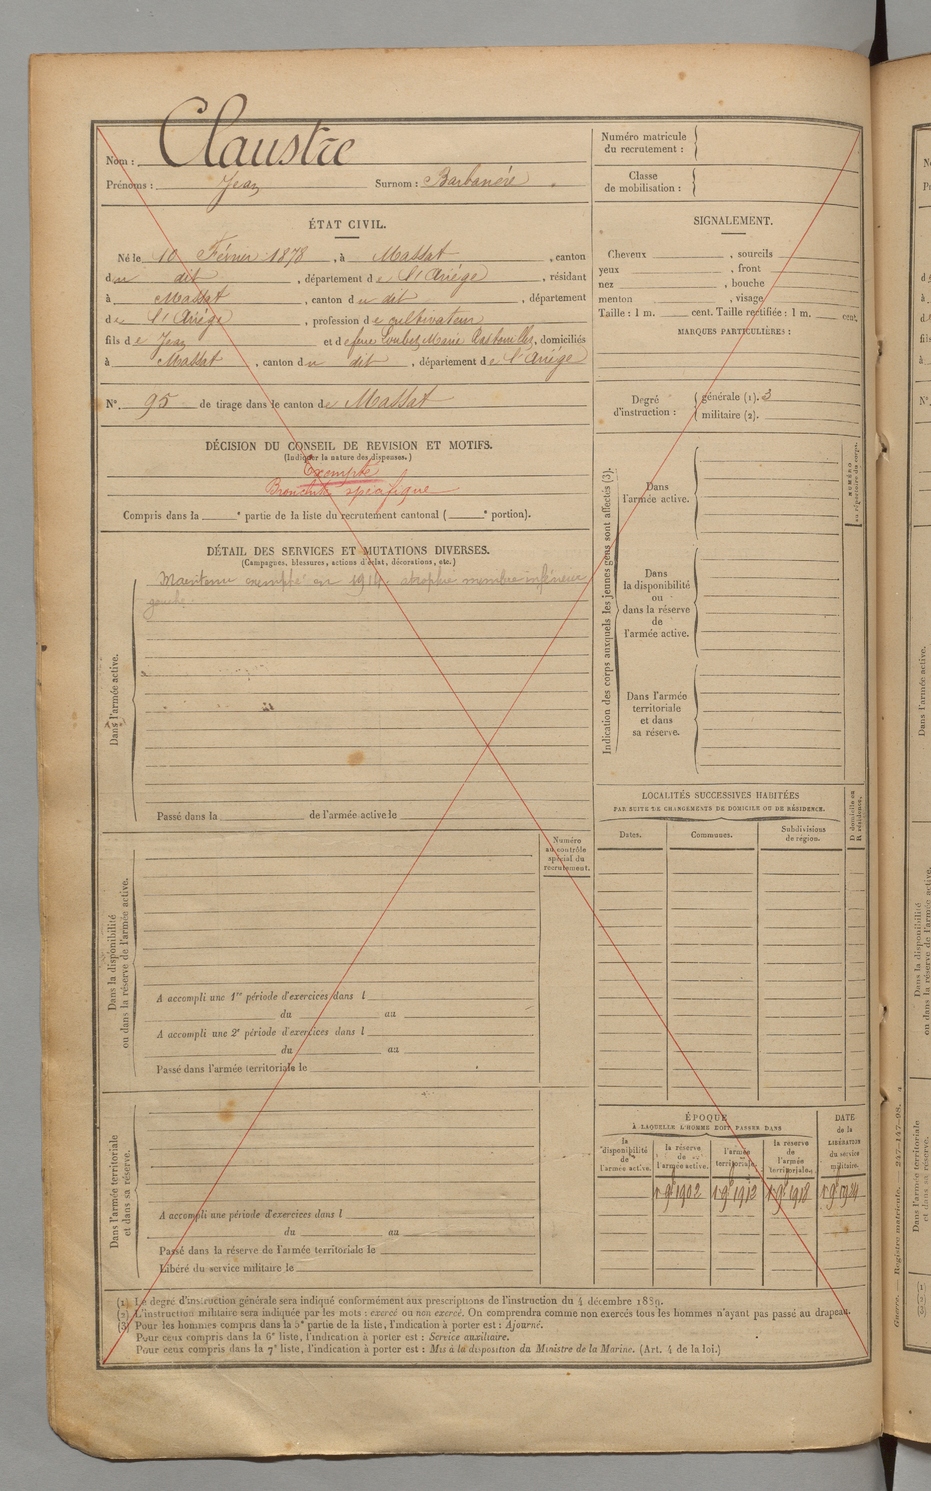 Nom : Claustre
Prénoms : Jean Surnom : Barbanère
Numéro matricule
du recrutement :
Classe
de mobilisation :
ÉTAT CIVIL.
Né le 10 Février 1878, à Massat, canton
du dit, département de l'Ariège, résidant
à Massat, canton du dit, département
de l'Ariège, profession de cultivateur
fils de Jean et de feue Loubet Marie, domiciliés
à Massat, canton du dit, département de l'Ariège
N° 95 de tirage dans le canton de Massat
SIGNALEMENT.
Cheveux , sourcils
yeux , front
nez , bouche
menton , visage
Taille : 1 m. cent. Taille rectifiée : 1 m. cent.
MARQUES PARTICULIÈRES :
Degré
d'instruction :
générale (1). 3
militaire (2).
DÉCISION DU CONSEIL DE REVISION ET MOTIFS.
(Indiquer la nature des dispenses.)
Exempté
Bronchite spécifique
Compris dans la e partie de la liste du recrutement cantonal ( e portion).
DÉTAIL DES SERVICES ET MUTATIONS DIVERSES.
(Campagnes, blessures, actions d'éclat, décorations, etc.)
Maintenu exempté en 1914 atrophie membre inférieur
gauche.
Dans l'armée active.
Passé dans la de l'armée active le
Indication des corps auxquels les jeunes gens sont affectés (3).
Dans
l'armée active.
NUMÉRO
au répertoire du corps.
Dans
la disponibilité
ou
dans la réserve
de
l'armée active.
Dans l'armée
territoriale
et dans
sa réserve.
LOCALITÉS SUCCESSIVES HABITÉES
PAR SUITE DE CHANGEMENTS DE DOMICILE OU DE RÉSIDENCE.
Dates.
Communes.
Subdivisions
de région.
D domicile ou
R résidence.
Dans la disponibilité
ou dans la réserve de l'armée active.
Numéro
au contrôle
spécial du
recrutement.
A accompli une 1re période d'exercices dans l
du au
A accompli une 2e période d'exercices dans l
du au
Passé dans l'armée territoriale le
Dans l'armée territoriale
et dans sa réserve.
A accompli une période d'exercices dans l
du au
Passé dans la réserve de l'armée territoriale le
Libéré du service militaire le
ÉPOQUE
À LAQUELLE L'HOMME DOIT PASSER DANS
la
disponibilité
de
l'armée active.
la réserve
de
l'armée active.
l'armée
territoriale.
la réserve
de
l'armée
territoriale.
DATE
de la
LIBÉRATION
du service
militaire.
1 9bre 1902
1 9bre 1912
1 9bre 1918
1 9bre 1924
(1) Le degré d'instruction générale sera indiqué conformément aux prescriptions de l'instruction du 4 décembre 1889.
(2) L'instruction militaire sera indiquée par les mots : exercé ou non exercé. On comprendra comme non exercés tous les hommes n'ayant pas passé au drapeau.
(3) Pour les hommes compris dans la 5e partie de la liste, l'indication à porter est : Ajourné.
Pour ceux compris dans la 6e liste, l'indication à porter est : Service auxiliaire.
Pour ceux compris dans la 7e liste, l'indication à porter est : Mis à la disposition du Ministre de la Marine. (Art. 4 de la loi.)
Guerre. Registre matricule. — 247-147-98.